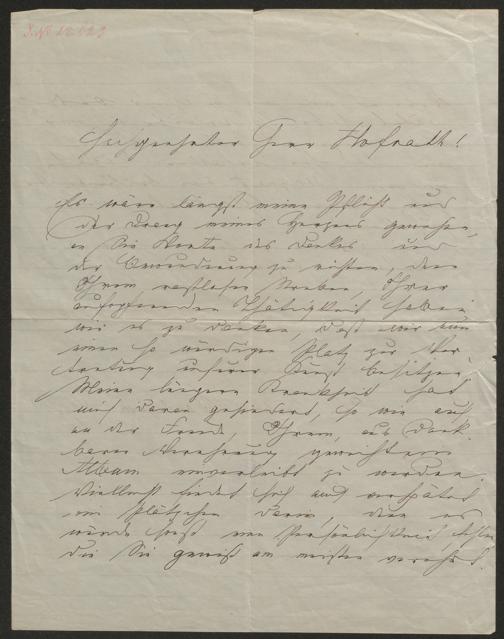 J. No 12.629
Hochgeehrter Herr Hofrath!
Es wäre längst meine Pflicht und
der Drang meines Herzens gewesen,
an Sie Worte des Dankes und
der Bewunderung zu richten, denn
Ihrem rastlosen Streben, Ihrer
aufopfernden Thätigkeit haben
wir es zu danken, daß wir nun
einen so würdigen Platz zur Ver-
tretung unserer Kunst besitzen.
Meine längere Krankheit hat
mich daran gehindert, so wie auch
an der Freude, Ihrem, aus Dank-
barer Verehrung gewidmeten
Album einverleibt zu werden.
Vielleicht findet sich auch verspätet
ein Plätzchen darin, denn es
würde sonst eine Persönlichkeit fehlen
die Sie gewiß am meisten verehrt.